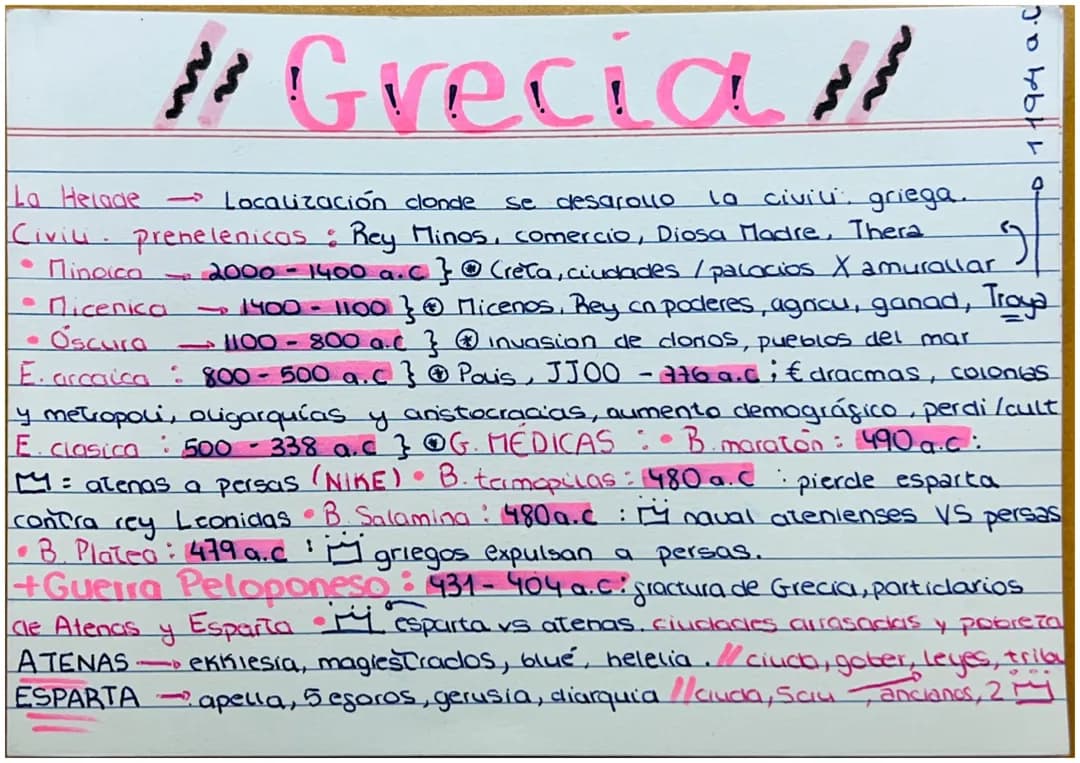 Grecia
1194 a.C
La Helade → Localización donde se desarollo la civili. griega.
Civili. prenelenicas : Rey Minos, comercio, Diosa Madre, Thera
• Minoica → 2000 - 1400 a.C } Creta, ciudades / palacios X amurallar
• Micenica → 1400 - 1100 } Micenos, Rey cn poderes, agricu, ganad, Troya
• Oscura → 1100 - 800 a.C } invasion de dorios, pueblos del mar
E. arcaica : 800 - 500 a.C } Polis, JJOO - 776 a.C ; € dracmas, colonias
y metropoli, oligarquías y aristocracias, aumento demográfico, perdi/cult
E. clasica : 500 - 338 a.C } G. MÉDICAS : • B. maratón : 490 a.C :
= atenas a persas (NIKE) • B. termopilas : 480 a.C : pierde esparta
contra rey Leonidas • B. Salamina : 480 a.C : naval atenienses VS persas
• B. Platea : 479 a.C : griegos expulsan a persas.
+ Guerra Peloponeso : 431 - 404 a.C : fractura de Grecia, particlarios
de Atenas y Esparta • esparta vs atenas. ciudades arrasadas y pobreza
ATENAS → ekklesia, magiestrados, blué, helelia. // ciuda, gober, leyes, tribu
ESPARTA → apella, 5 eforos, gerusia, diarquia // ciuda, 5 ciu, ancianos, 2